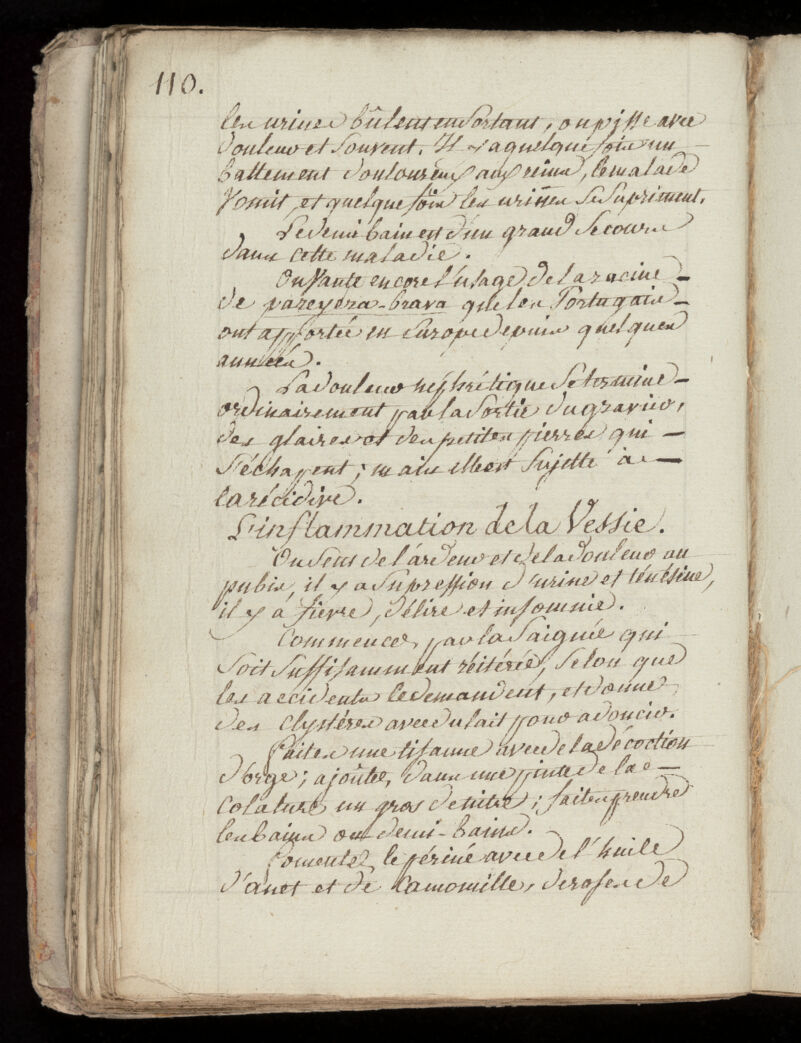 110.
les urines bûlent en Sortant, on pisse avec
douleur et Souvent. Il y a quelque fois un
battement douloureux aux reins, le malade
Vomit, et quelque fois les urines Se Supriment.
Le demi bain est d'un grand Secours
dans cette maladie.
On Vante encore l'usage de la racine
de pareyera-brava que les Portugais
ont apportée en Europe depuis quelques
années.
La douleur néphrétique Se termine
ordinairement par la Sortie du gravier,
des glaires et des petites pierres qui
S'échapent; mais elle est Sujette à
la récidive.
L'inflammation de la Vessie.
On Sent de l'ardeur et de la douleur au
pubis, il y a Supression d'urine et ténésme,
il y à fievre, délire et insomnie.
Commencez par la Saignée qui
Soit Suffisamment réitérée, Selon que
les accidents le demandent, et donne
des clystéres avec du lait pour adoucir.
Faites une tisanne avec de la décoction
d'orge; ajoutez, dans une pinte de la
Colature un gros de nitre; faites prendre
les bains ou demi-bains.
Fomentez le périné avec de l'huile
d'anet et de Camomille, de roses de